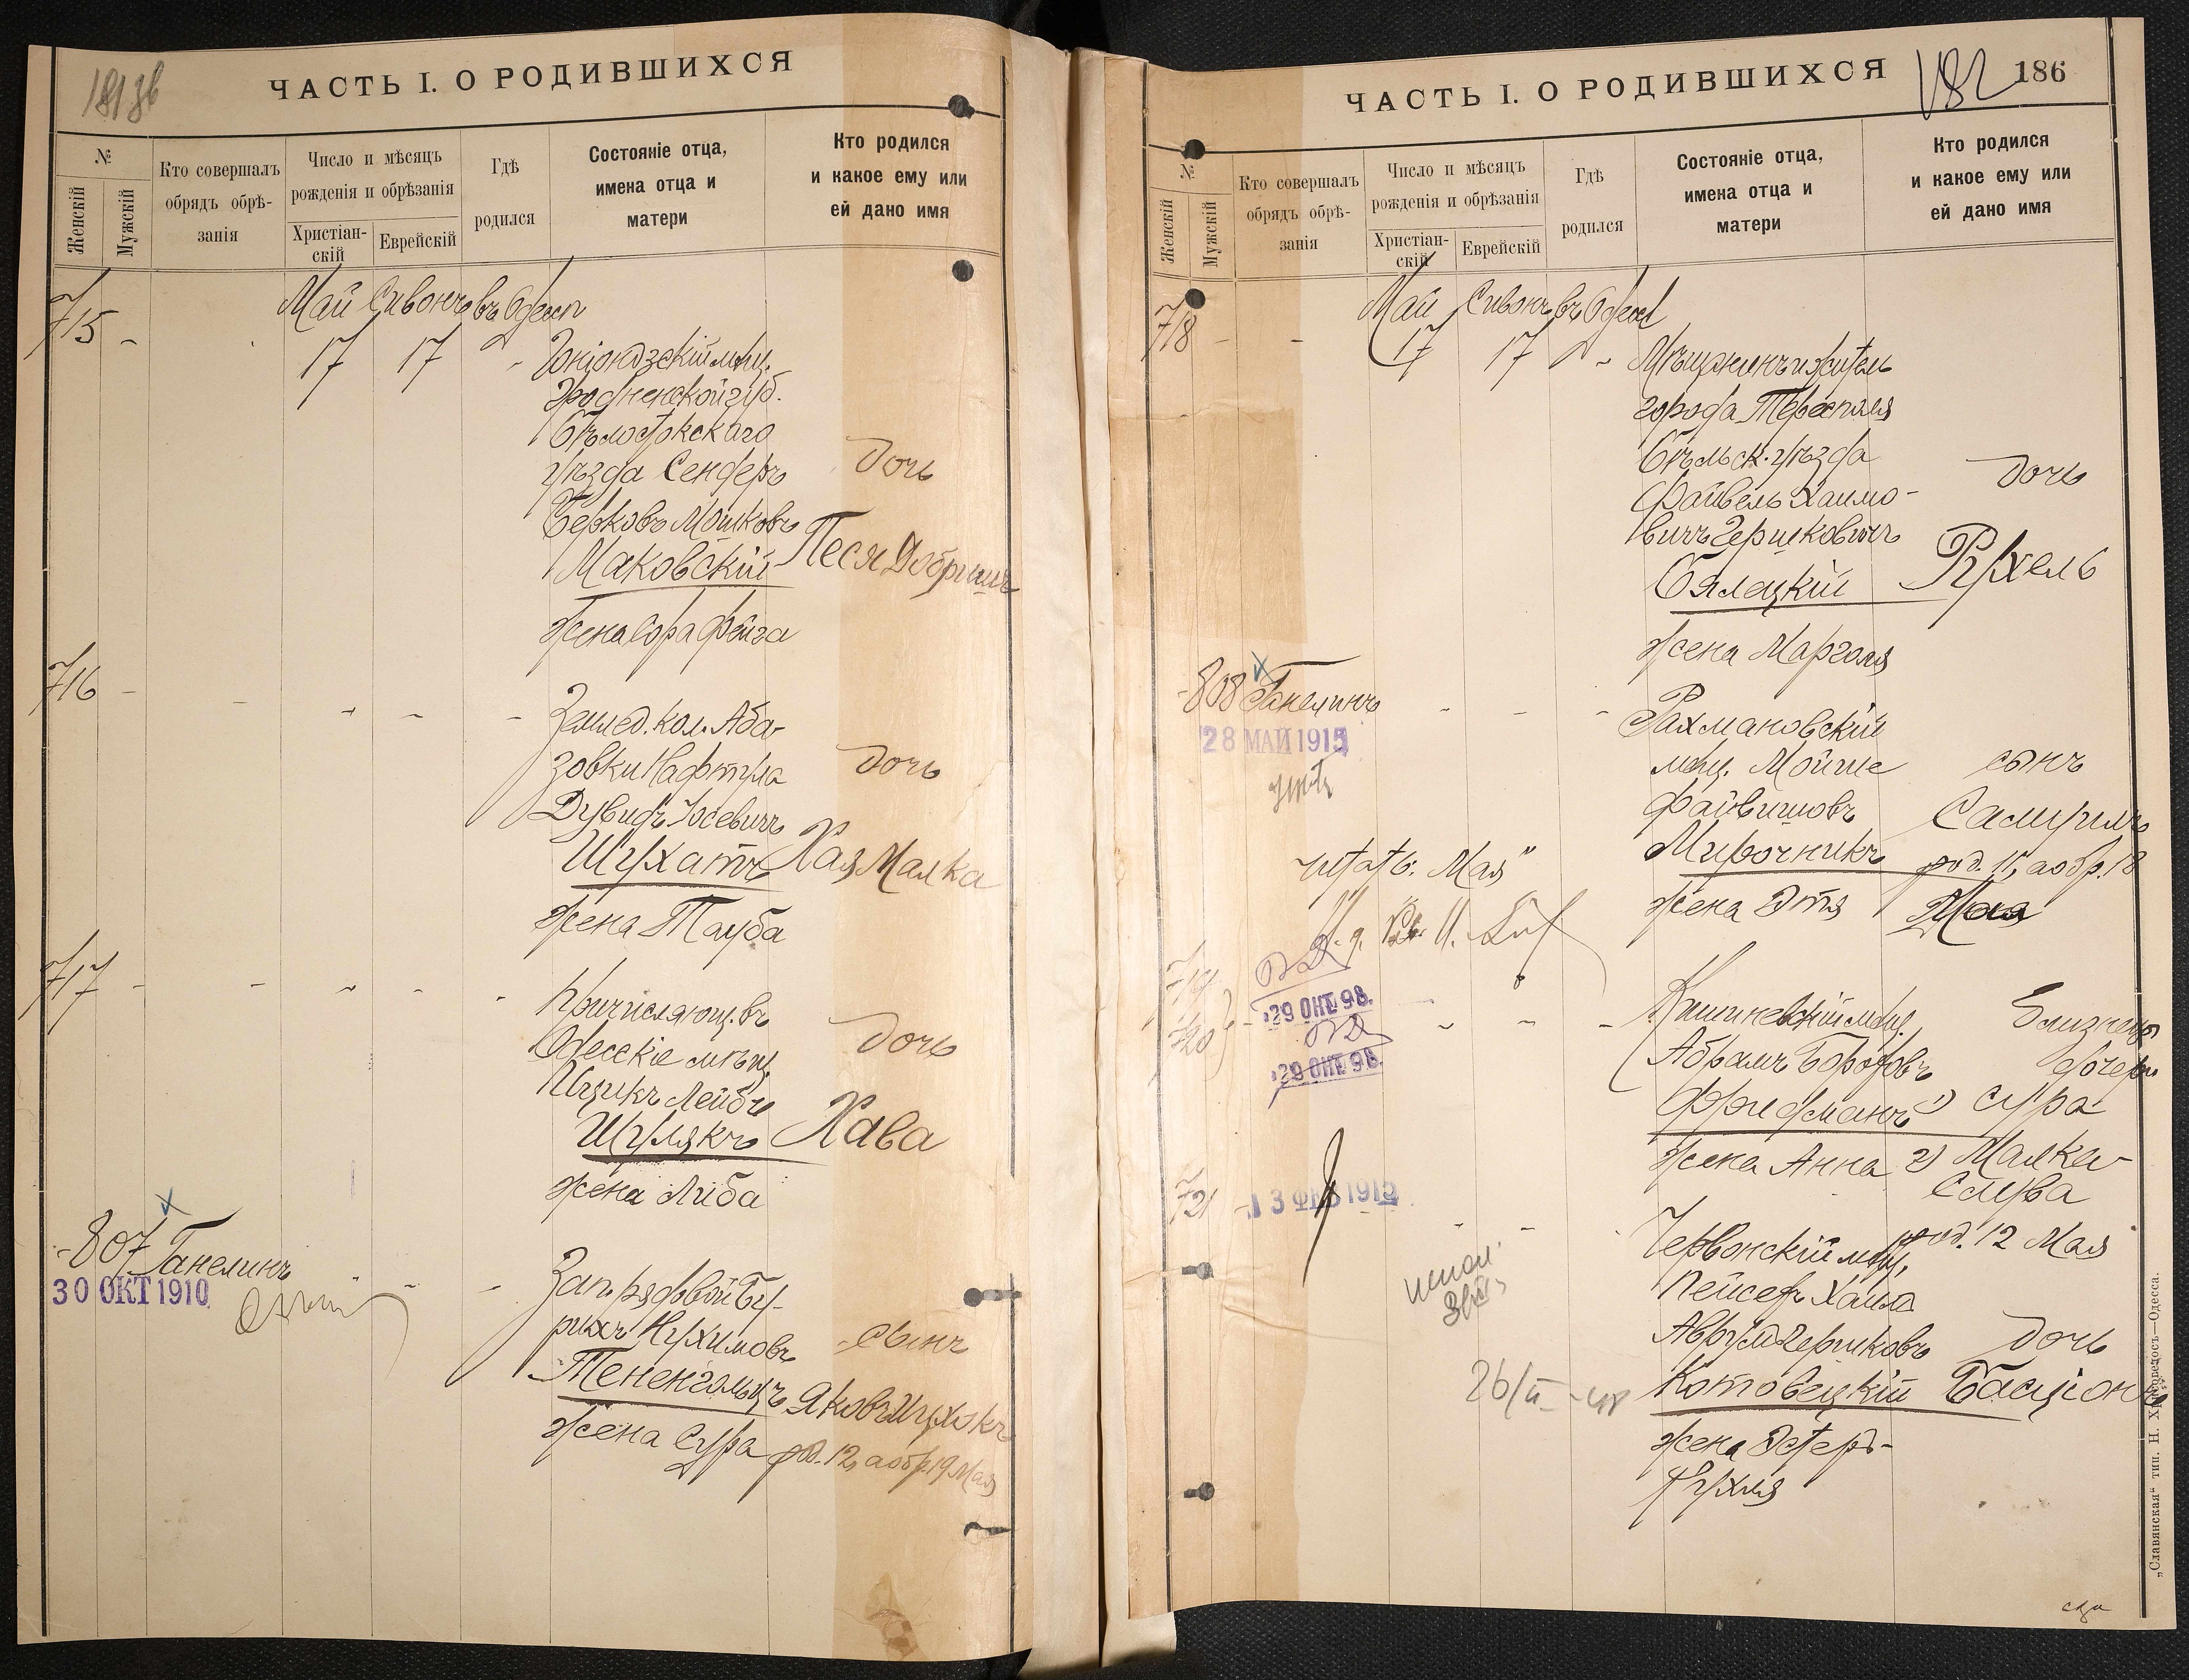 ЧАСТЬ I. О РОДИВШИХСЯ
№
Женскій
Мужскій
Кто совершалъ
обрядъ обрѣ-
занія
Число и мѣсяцъ
рожденія и обрѣзанія
Христіан-
скій
Еврейскій
Гдѣ
родился
Состояніе отца,
имена отца и
матери
Кто родился
и какое ему или
ей дано имя
Май Сивонъ въ Одессѣ
715 -
17 17
Гоніондзскій мѣщ.
Гродненской губ.
Бѣлостокскаго
уѣзда Сендеръ
дочь
Берковъ Мошковъ
Маковскій
Песя Добришъ
жена Сора Фейга
716 - - - - -
Землед. кол. Аба-
зовки Нафтула
дочь
Дувидъ Іосевичъ
Шухатъ Хая Малка
жена Тауба
717 - - - - -
Причисляющ. въ
Одесскіе мѣщ.
дочь
Ицикъ Лейбъ
Шулякъ Хава
жена Либа
-807 Ганелинъ
30 ОКТ 1910
Зап. рядовой Бу-
рихъ Нухимовъ
сынъ
Тененгольцъ
жена Сура
род. 12, а обр. 19 Мая
ЧАСТЬ I. О РОДИВШИХСЯ
182 186
№
Женскій
Мужскій
Кто совершалъ
обрядъ обрѣ-
занія
Число и мѣсяцъ
рожденія и обрѣзанія
Христіан-
скій
Еврейскій
Гдѣ
родился
Состояніе отца,
имена отца и
матери
Кто родился
и какое ему или
ей дано имя
Май Сивонъ въ Одессѣ
718 - -
17 17
Мѣщанинъ и житель
города Тересполя
Бѣльск. уѣзда
дочь
Файвель Хаимо-
вичъ Гершковичъ
Бялецкій
Рухель
жена Марголя
-808 Ганелинъ
28 МАЙ 1915
Рахмановскій
мѣщ. Мойше
сынъ
Файвишовъ
Самуилъ
Мирочникъ
род. 11, а обр. 18
читать: „Мая“
жена Этя
Мая
719
720
29 ОКТ. 98.
29 ОКТ. 98.
Кишиневскій мѣщ.
Близнецы
Абрамъ Боруховъ
дочери
Фридманъ 1) Сура
жена Анна 2) Малка
721
13 ФЕВ 1915
род. 12 Мая
Пейсехъ Хаимъ
Аврумъ Гершковъ
дочь
Котовецкій
жена Эстеръ-
Рухля
„Славянская“ тип. Н. Хрисогелосъ—Одесса.